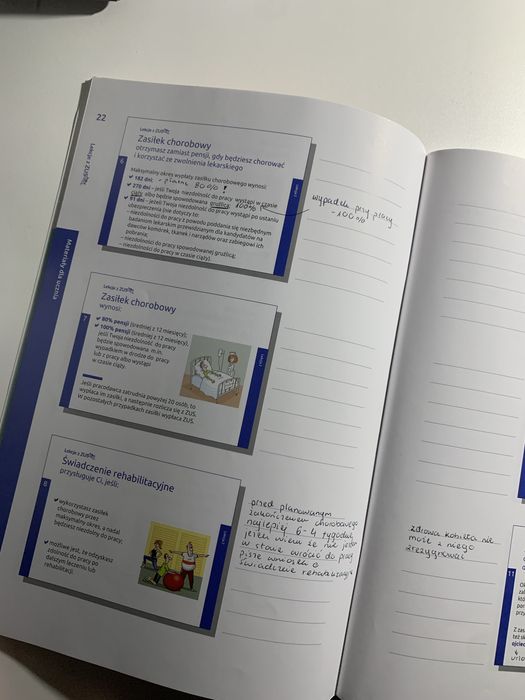 22
Lekcje z ZUS
Materiały dla ucznia
Lekcje z ZUS
Zasiłek chorobowy
otrzymasz zamiast pensji, gdy będziesz chorować
i korzystać ze zwolnienia lekarskiego
6
Maksymalny okres wypłaty zasiłku chorobowego wynosi:
182 dni; - płatne 80% !
270 dni - jeśli Twoja niezdolność do pracy wystąpi w czasie
ciąży albo będzie spowodowana gruźlicą; 100%
91 dni - jeżeli Twoja niezdolność do pracy wystąpi po ustaniu
ubezpieczenia (nie dotyczy to:
– niezdolności do pracy z powodu poddania się niezbędnym
badaniom lekarskim przewidzianym dla kandydatów na
dawców komórek, tkanek i narządów oraz zabiegowi ich
pobrania;
– niezdolności do pracy spowodowanej gruźlicą;
– niezdolności do pracy w czasie ciąży).
wypadek przy pracy
- 100%
Lekcje z ZUS
Zasiłek chorobowy
wynosi:
7
80% pensji (średniej z 12 miesięcy);
100% pensji (średniej z 12 miesięcy),
jeśli Twoja niezdolność do pracy
będzie spowodowana m.in.
wypadkiem w drodze do pracy
lub z pracy albo wystąpi
w czasie ciąży.
Jeśli pracodawca zatrudnia powyżej 20 osób, to
wypłaca im zasiłki, a następnie rozlicza się z ZUS.
W pozostałych przypadkach zasiłki wypłaca ZUS.
Lekcje z ZUS
Świadczenie rehabilitacyjne
przysługuje Ci, jeśli:
8
wykorzystasz zasiłek
chorobowy przez
maksymalny okres, a nadal
będziesz niezdolny do pracy;
możliwe jest, że odzyskasz
zdolność do pracy po
dalszym leczeniu lub
rehabilitacji.
przed planowanym
zakończeniem chorobowego
najlepiej 6-4 tygodnie
jeżeli wiem że nie jestem
w stanie wrócić do pracy
piszę wniosek o
świadczenie rehabilitacyjne
zdrowa kobieta nie
może z niego
zrezygnować
11